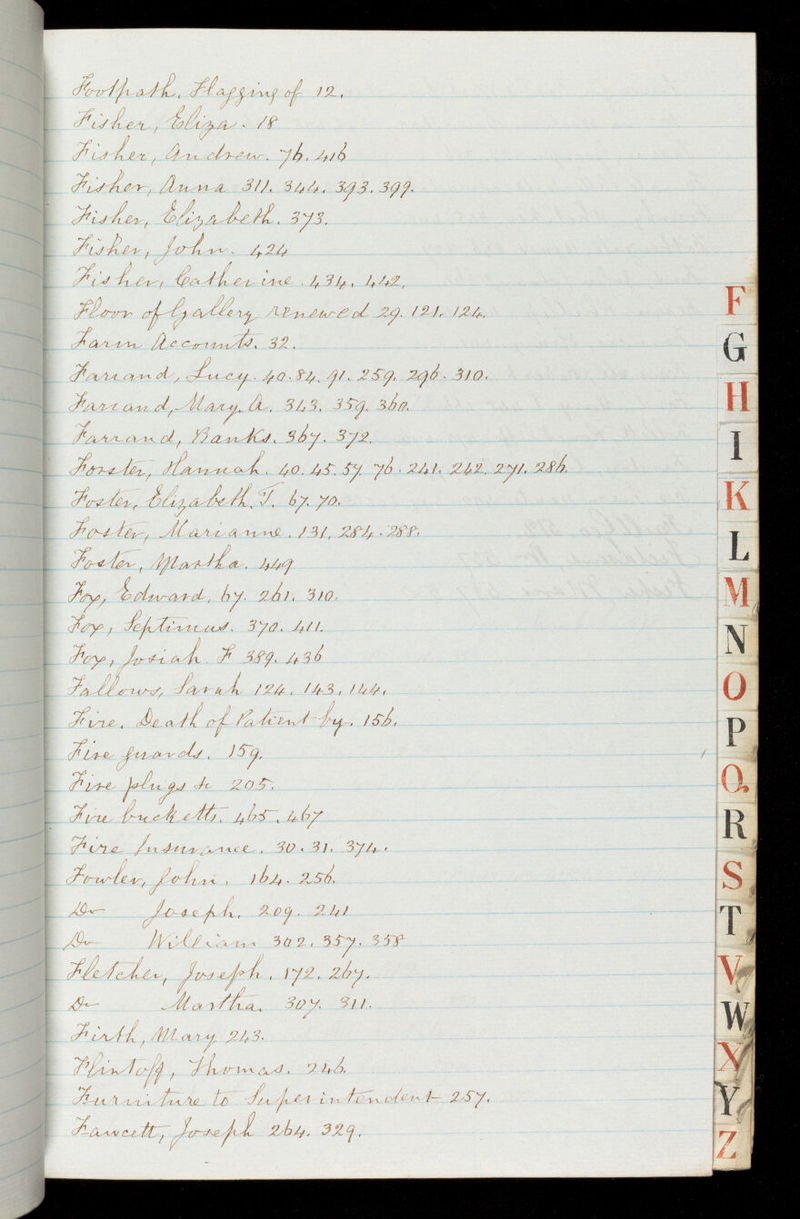 Footpath, Flagging of 12.
Fisher, Eliza. 18
Fisher, Andrew. 76. 416
Fisher, Anna 311. 344. 393. 399.
Fisher, Elizabeth. 373.
Fisher, John. 424
Fisher, Catherine. 434. 442.
Floor of Gallery renewed 29. 121. 124.
Farm Accounts. 32.
Farrand, Lucy. 40. 84. 91. 259. 296. 310.
Farrand, Mary. A. 343. 359. 360.
Farrand, Banks. 367. 372.
Forster, Hannah. 40. 45. 59. 76. 241. 242. 271. 286.
Foster, Elizabeth. T. 67. 70.
Foster, Marianne. 131. 284. 288.
Foster, Martha. 449
Fox, Edward. 67. 261. 310.
Fox, Septimus. 370. 411.
Fox, Josiah F 389. 436
Fallows, Sarah 124. 143. 144.
Fire. Death of Patient by. 156.
Fire guards. 159.
Fire plugs &c 205.
Fire bucketts. 465. 467
Fire Insurance. 30. 31. 374.
Fowler, John. 164. 256.
Do Joseph. 209. 241
Do William 302. 357. 358
Fletcher, Joseph. 172. 267.
Do Martha. 307. 311.
Firth, Mary 243.
Flintoff, Thomas. 246.
Furniture to Superintendent 257.
Fawcett, Joseph 264. 329.
F
G
H
I
K
L
M
N
O
P
Q
R
S
T
V
W
X
Y
Z